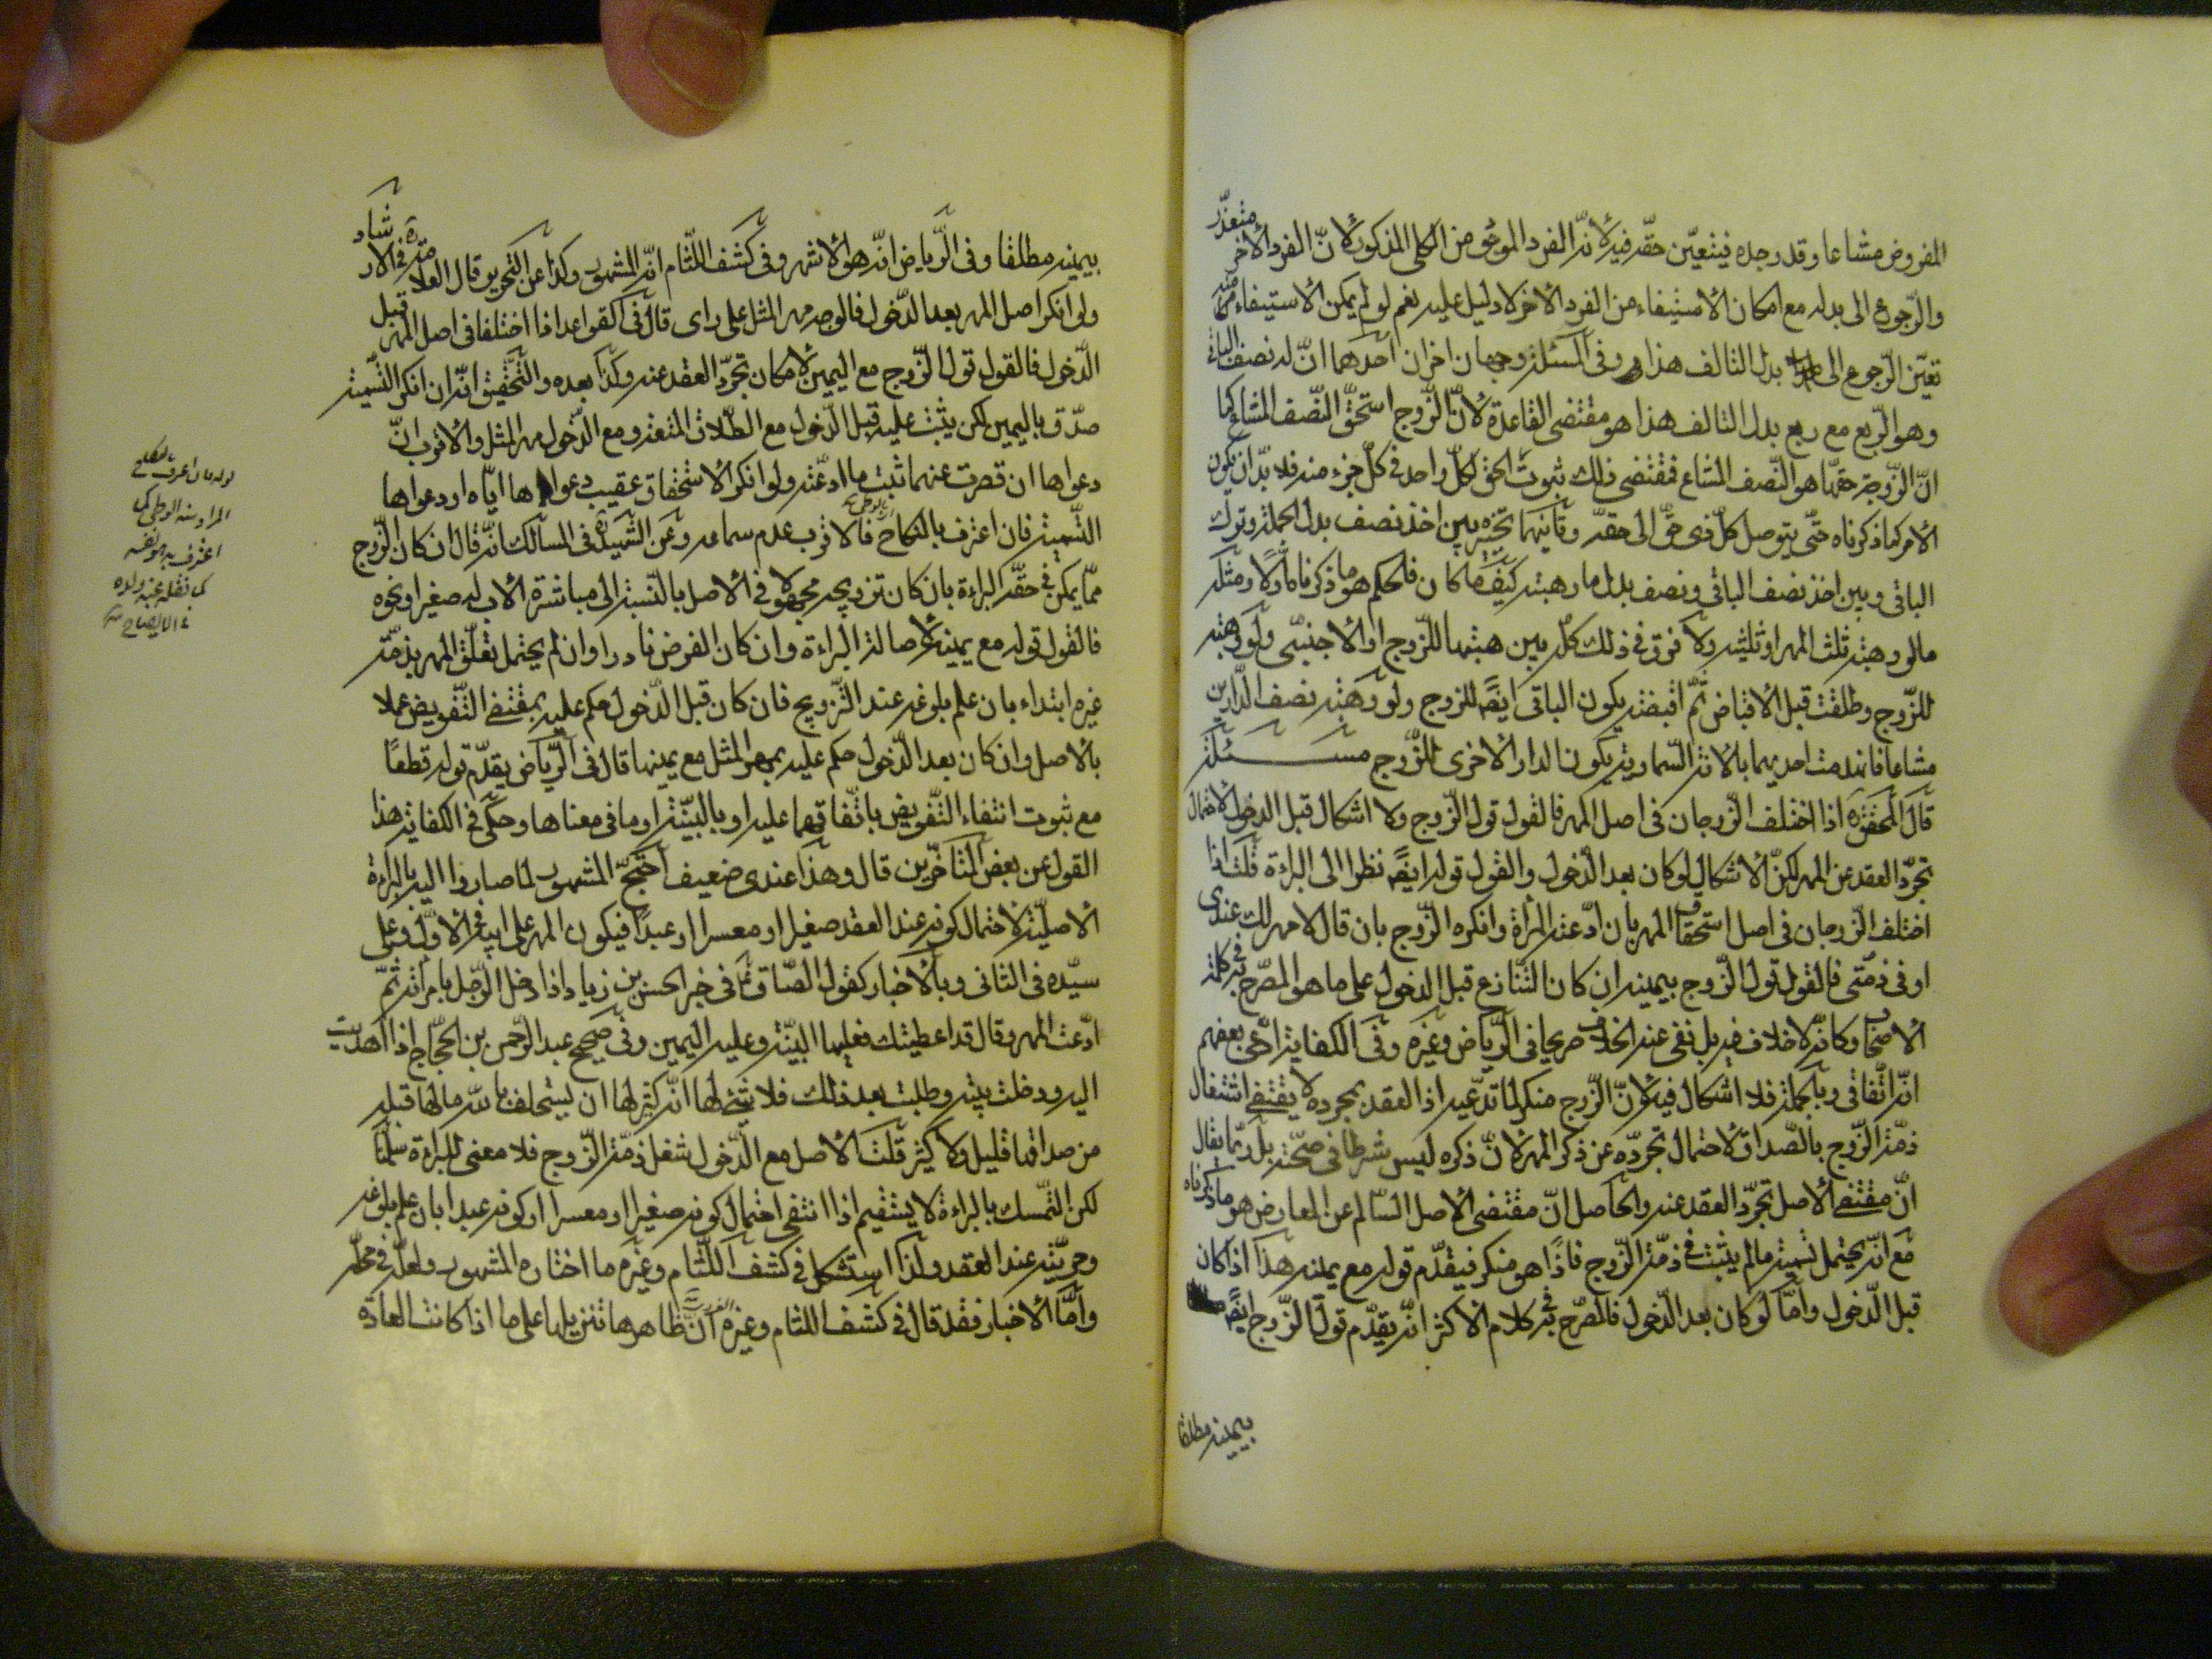 المفروض مشاعا وقد وجده فيتعيّن حقّه فيه لانّه الفرد الموجود من الكلى المذكور لانّ الفرد الاخر متعذّر
والرّجوع الى بدله مع امكان الاستيفاء من الفرد الاخر لا دليل عليه نعم لو لم يمكن الاستيفاء منه
تعيّن الرّجوع الى بدل التالف هذا وفى المسئلة وجهان اخران احدهما انّ له نصف الباقى
وهو الرّبع مع ربع بدل التالف هذا هو مقتضى القاعدة لانّ الزّوج استحقّ النّصف المشاع كما
انّ الزّوجة حقّها هو النّصف المشاع فمقتضى ذلك ثبوت الحق لكلّ واحد فى كلّ جزء منه فلا بدّ ان يكون
الامر كما ذكرناه حتّى يتوصل كلّ ذى حقّ الى حقّه وثانيهما تخيّره بين اخذ نصف بدل الجملة وترك
الباقى وبين اخذ نصف الباقى ونصف بدل ما وهبته كيف ما كان فالحكم هو ما ذكرناه اوّلا ومثله
ما لو وهبته ثلث المهر او ثلثيه ولا فرق فى ذلك كلّه بين هبتها للزّوج او الاجنبى ولو وهبته
للزّوج وطلقت قبل الاقباض ثمّ اقبضه يكون الباقى ايضا للزوج ولو وهبته نصف الدّارين
مشاعا فانهدمت احديهما بالافة السّماوية يكون الدار الاخرى للزّوج مسئلة
قال المحقق ره اذا اختلف الزّوجان فى اصل المهر فالقول قول الزّوج ولا اشكال قبل الدخول لاحتمال
تجرّد العقد عن المهر لكنّ الاشكال لو كان بعد الدّخول والقول قوله ايضا نظرا الى البراءة قلت اذا
اختلف الزّوجان فى اصل استحقاق المهر بان ادّعته المرأة وانكره الزّوج بان قال لا مهر لك عندى
او فى ذمّتى فالقول قول الزّوج بيمينه ان كان التّنازع قبل الدخول على ما هو المصرّح به فى كلمة
الاصحاب وكانّه لا خلاف فيه بل نفى عنه الخلاف صريحا فى الرّياض وغيره وفى الكفاية ادّعى بعضهم
انّه اتّفاقى وبالجملة فلا اشكال فيه لانّ الزّوج منكر لما تدّعيه اذ العقد بمجرده لا يقتضى اشتغال
ذمّة الزّوج بالصّداق لاحتمال تجرّده عن ذكر المهر لانّ ذكره ليس شرطا فى صحّته بل ربّما يقال
انّ مقتضى الاصل تجرّد العقد عنه والحاصل انّ مقتضى الاصل السّالم عن المعارض هو ما ذكرناه
مع انّه يحتمل تسمية ما لم يثبت فى ذمّة الزّوج فاذًا هو منكر فيقدّم قوله مع يمينه هذا اذا كان
قبل الدّخول وامّا لو كان بعد الدّخول فالمصرّح به فى كلام الاكثر انّه يقدّم قول الزّوج ايضا
بيمينه مطلقا
بيمينه مطلقا وفى الرّياض انّه هو الاشهر وفى كشف اللّثام انّه المشهور وكذا عن التّحرير قال العلامة ره فى الارشاد
ولو انكر اصل المهر بعد الدّخول فالوجه مهر المثل على راى قال فى القواعد اذا اختلفا فى اصل المهر قبل
الدّخول فالقول قول الزّوج مع اليمين لامكان تجرّد العقد عنه وكذا بعده والتّحقيق انّه ان انكر التّسمية
صدّق باليمين لكن يثبت عليه قبل الدّخول مع الطّلاق المتعة ومع الدّخول مهر المثل والاقرب انّ
دعواها ان قصرت عنهما ثبت ما ادّعته ولو انكر الاستحقاق عقيب دعواها ايّاه او دعواها
التّسمية فان اعترف بالنكاح فالاقرب عدم سماعه وعن الشّهيد ره فى المسالك انّه قال ان كان الزّوج
ممّا يمكن فى حقّه البراءة بان كان تزويجه مجهولا فى الاصل بالنّسبة الى مباشرة الاب له صغيرا ونحوه
فالقول قوله مع يمينه لاصالة البراءة وان كان الفرض نادرا وان لم يحتمل تعلّق المهر بذمّة
غيره ابتداء بان علم بلوغه عند التّزويج فان كان قبل الدّخول حكم عليه بمقتضى التّفويض عملا
بالاصل وان كان بعد الدّخول حكم عليه بمهر المثل مع يمينها قال فى الرّياض يقدّم قوله قطعًا
مع ثبوت انتفاء التّفويض باتّفاقهما عليه او بالبيّنة او ما فى معناها وحكى فى الكفاية هذا
القول عن بعض المتاخّرين قال وهذا عندى ضعيف احتجّ المشهور لما صاروا اليه بالبراءة
الاصليّة لاحتمال كونه عند العقد صغيرا او معسرا او عبدًا فيكون المهر على ابيه فى الاوّل وعلى
سيّده فى الثانى وبالاخبار كقول الصّادق ع فى خبر الحسن بن زياد اذا دخل الرّجل بامرأته ثمّ
ادّعت المهر وقال قد اعطيتك فعليها البيّنة وعليه اليمين وفى صحيح عبد الرّحمن بن الحجّاج اذا اهديت
اليه ودخلت بيته وطلبت بعد ذلك فلا شئ لها انّه كثير لها ان يستحلف بالله ما لها قبله
من صداقها قليل ولا كثير قلت الاصل مع الدّخول شغل ذمّة الزّوج فلا معنى للبراءة سلّمنا
لكن التمّسك بالبراءة لا يستقيم اذا انتفى احتمال كونه صغيرا او معسرا او كونه عبدا بان علم بلوغه
وحريّته عند العقد ولذا استشكل فى كشف اللّثام وغيره ما اختاره المشهور ولعلّه فى محلّه
وامّا الاخبار فقد قال فى كشف اللثام وغيره انّ ظاهرها تنزيلها على ما اذا كانت العادة
المراد منه الوطى كما
اعترف به مؤلفه
كما نقله عنه ولده
فى الايضاح منه